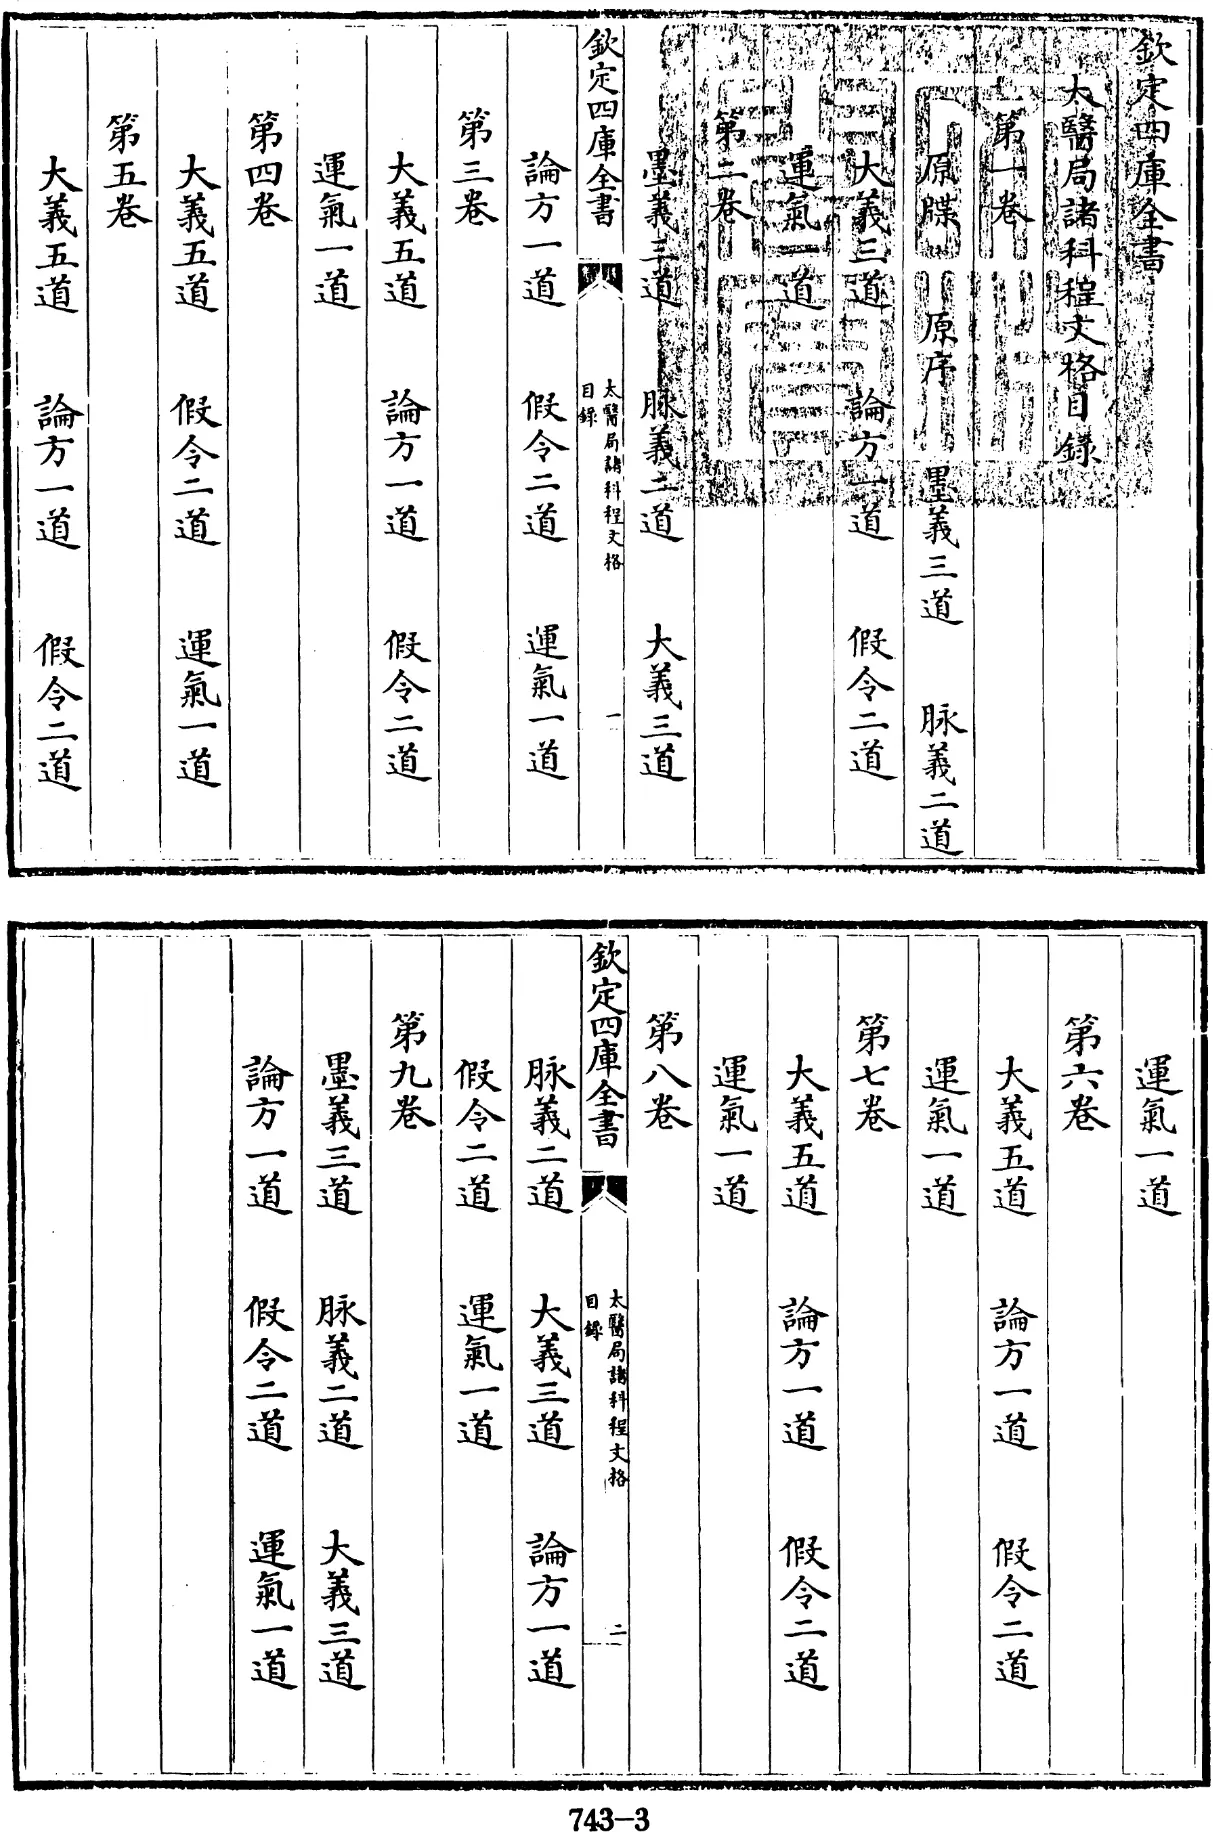 欽定四庫全書
太醫局諸科程文格目錄
第一卷
原牒 原序 墨義三道 脉義二道
大義三道 論方一道 假令二道
運氣一道
第二卷
墨義三道 脉義二道 大義三道
欽定四庫全書 太醫局諸科程文格
目錄 一
論方一道 假令二道 運氣一道
第三卷
大義五道 論方一道 假令二道
運氣一道
第四卷
大義五道 假令二道 運氣一道
第五卷
大義五道 論方一道 假令二道
運氣一道
第六卷
大義五道 論方一道 假令二道
運氣一道
第七卷
大義五道 論方一道 假令二道
運氣一道
第八卷
欽定四庫全書 太醫局諸科程文格
目錄 二
脉義二道 大義三道 論方一道
假令二道 運氣一道
第九卷
墨義三道 脉義二道 大義三道
論方一道 假令二道 運氣一道
743-3